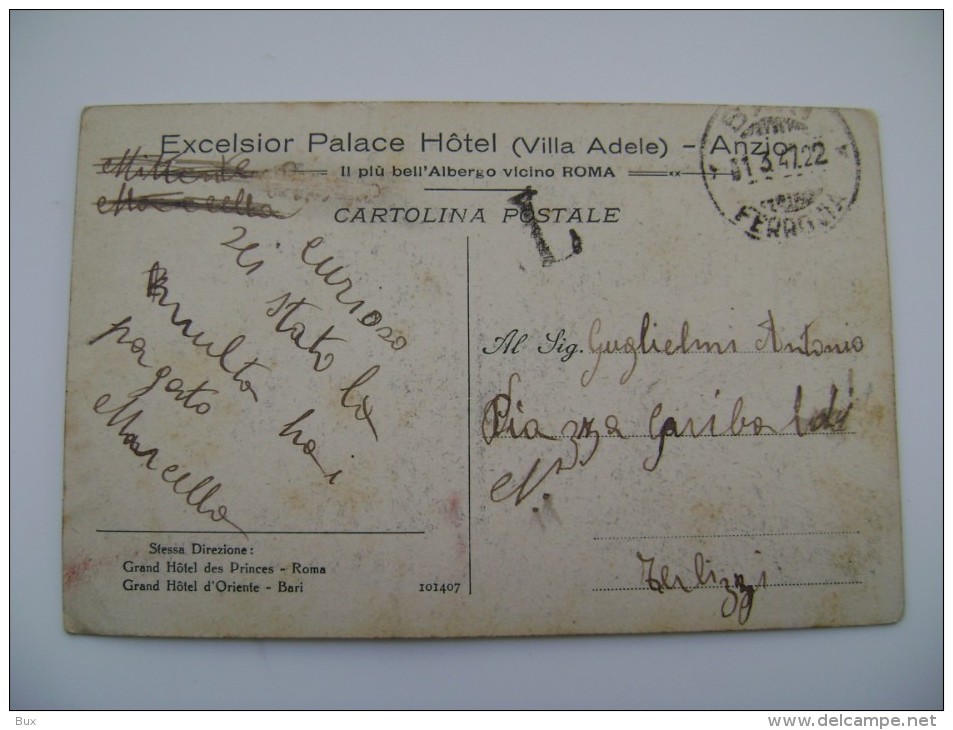 Excelsior Palace Hôtel (Villa Adele) - Anzio
Il più bell'Albergo vicino ROMA
CARTOLINA POSTALE
Mittente
Marcella
T
1.3.47.22
FERROVIA
curioso
sei stato la
multa hai
pagato
Marcella
Al Sig. Guglielmi Antonio
Piazza Garibaldi
N.
Terlizzi
Stessa Direzione:
Grand Hôtel des Princes - Roma
Grand Hôtel d'Oriente - Bari
101407
Bux
www.delcampe.net